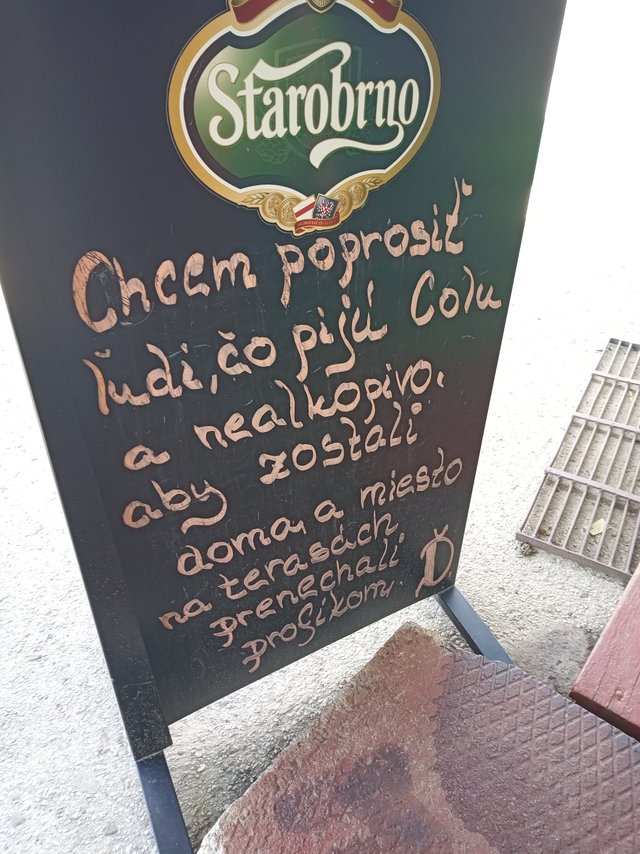 Starobrno
Chcem poprosiť
ľudi, čo pijú Colu
a nealkopivo,
aby zostali
doma, a miesto
na terasách
prenechali
profíkom. Ď